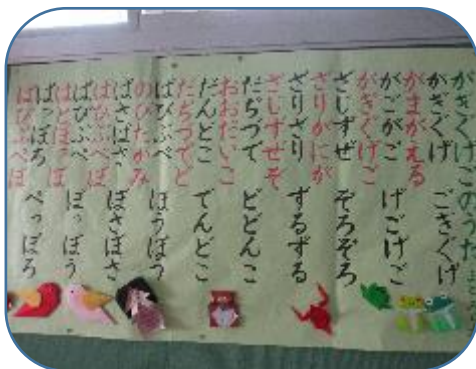 がぎぐげごのうた
がぎぐげ ごぎぐげ
がまがえる
がごがご げごげご
がぎぐげご
ざじずぜ ぞろぞろ
ざりがにが
ざりざり ずるずる
ざじずぜぞ
だぢづで どどんこ
おおだいこ
だんどこ でんどこ
だぢづでど
ばびぶべ ぼうぼう
のびたかみ
ばさばさ ぼさぼさ
ばびぶべぼ
ぱぴぷぺ ぽっぽう
はとぽっぽ
ぱっぽろ ぺっぽろ
ぱぴぷぺぽ